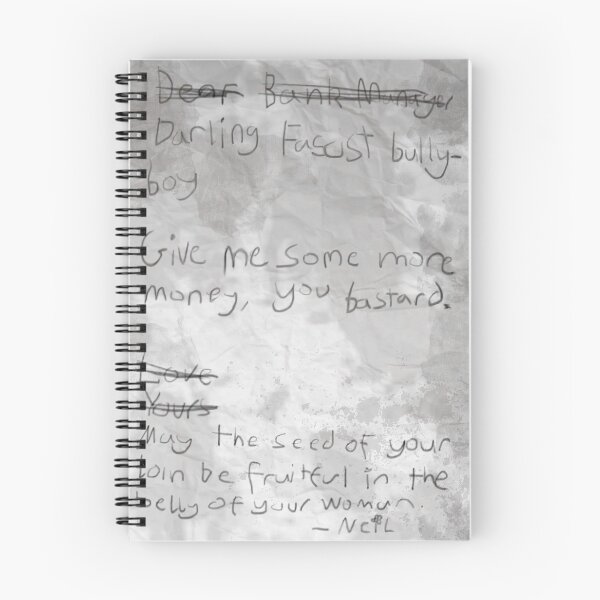 Dear Bank Manager
Darling Fascist bully-
boy
Give me some more
money, you bastard.
Love
Yours
May the seed of your
loin be fruitful in the
belly of your woman.
– Neil